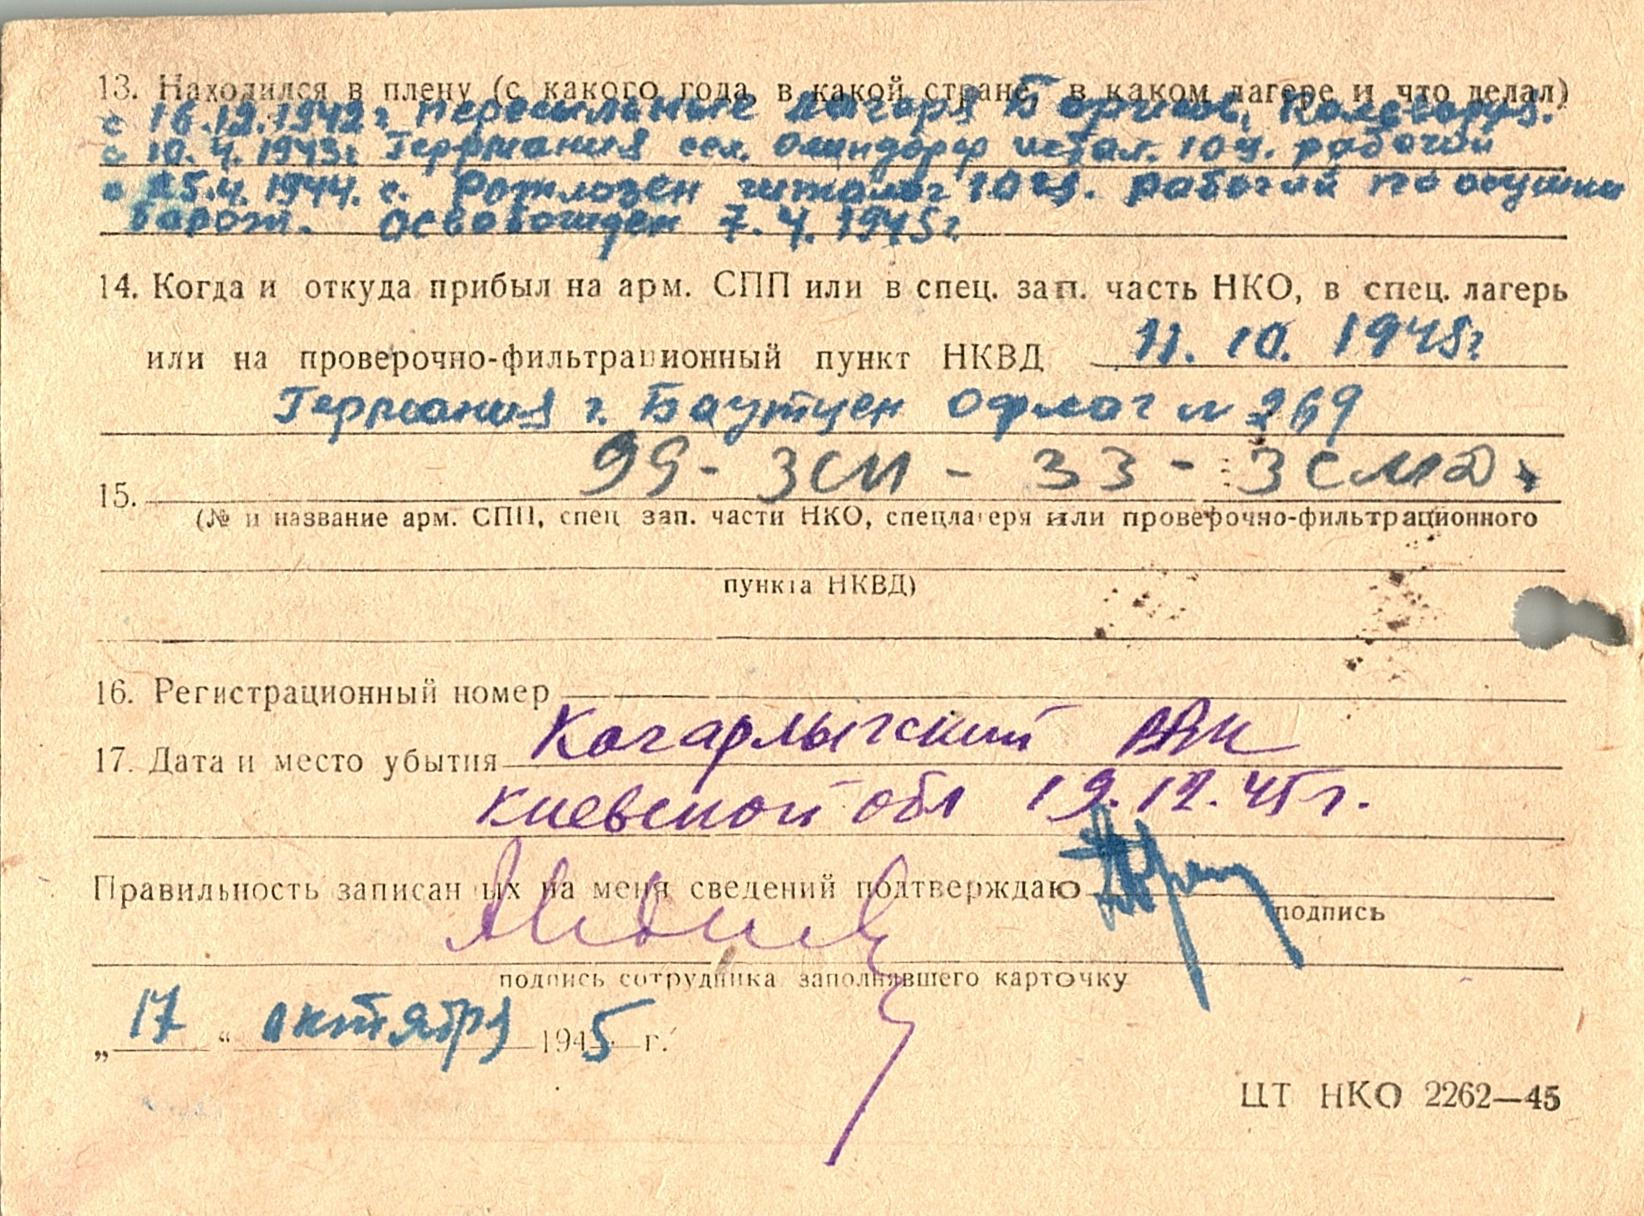 13. Находился в плену (с какого года, в какой стране, в каком лагере и что делал)
с 16.12.1942г пересыльные лагеря Борисов,
с 10.4.1943г Германия сел. 10 ч. рабочий
с 25.4.1944. с. 10 ч. рабочий по осушки
дорож. Освобожден 7.4.1945г
14. Когда и откуда прибыл на арм. СПП или в спец. зап. часть НКО, в спец. лагерь
или на проверочно-фильтрационный пункт НКВД 11.10.1945г
Германия г. Баутцен Офлаг № 269
15. 99 - ЗСП - 33 - ЗСМД.
(№ и название арм. СПП, спец зап. части НКО, спецлагеря или проверочно-фильтрационного
пункта НКВД)
16. Регистрационный номер
17. Дата и место убытия Кагарлыгский РВК
Киевской обл 19.12.45 г.
Правильность записанных на меня сведений подтверждаю
подпись
подпись сотрудника заполнявшего карточку
„17“ октября 1945 г.
ЦТ НКО 2262—45